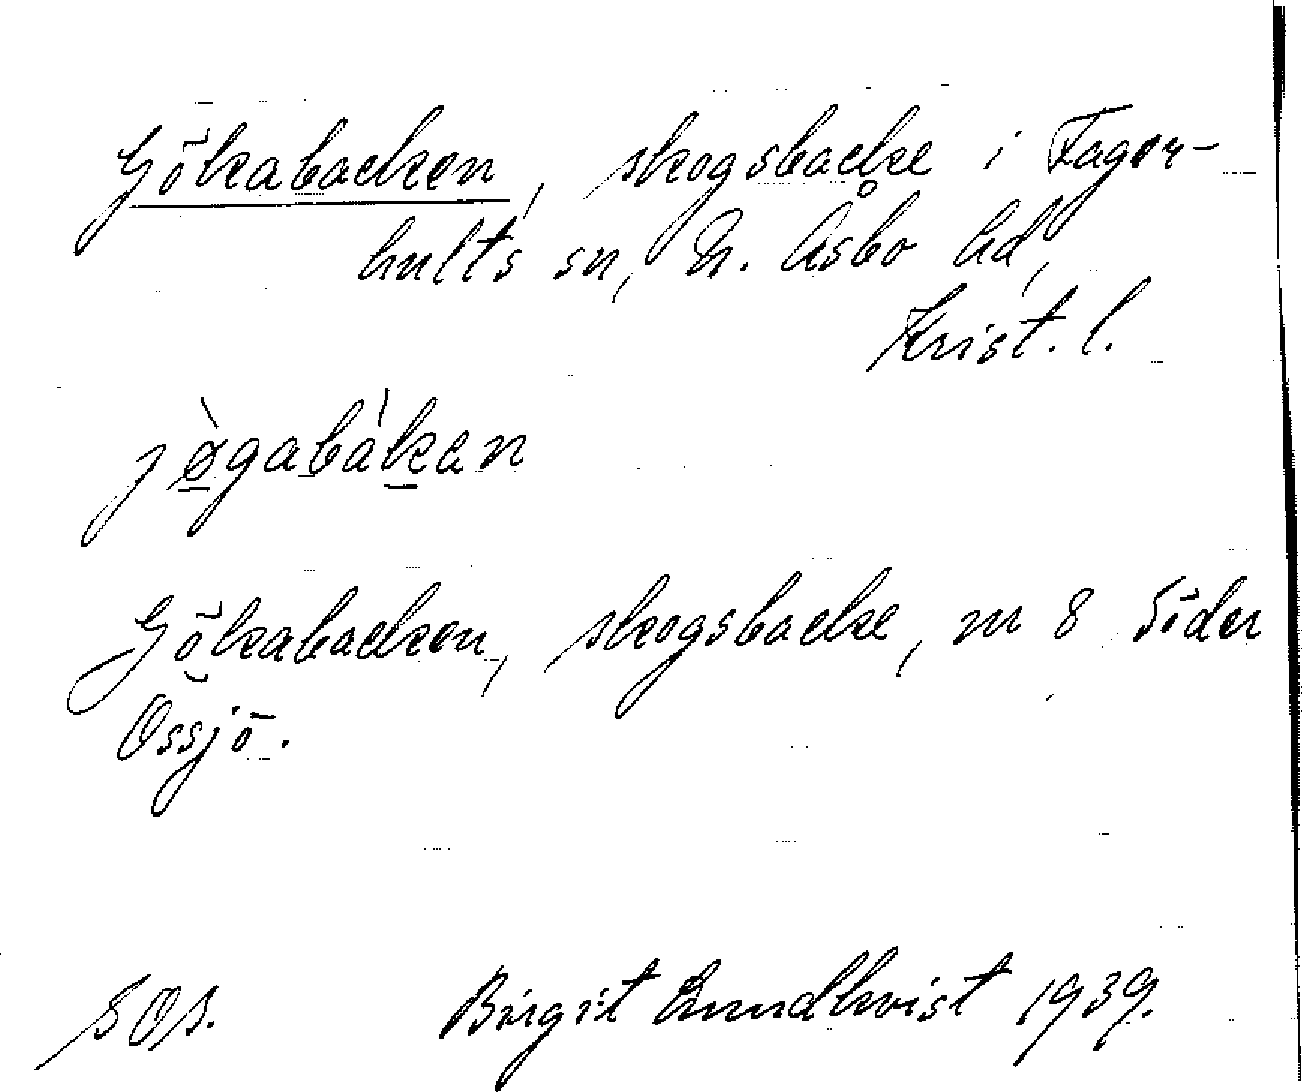 Gökabacken, skogsbacke i Fager-
hults sn, N. Åsbo hd,
Krist. l.
jø̀gabàkan
Gökabacken, skogsbacke, nr 8 Söder
Össjö.
SOs. Birgit Lundkvist 1939.